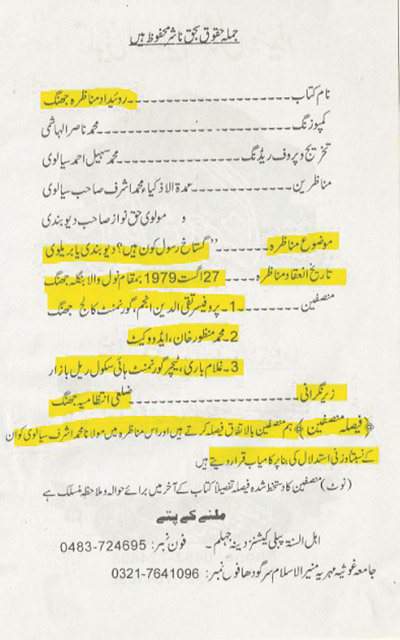 جملہ حقوق بحق ناشر محفوظ ہیں
نام کتاب ---------------- روئیداد مناظرہ جھنگ
کمپوزنگ ---------------- محمد ناصر الہاشمی
تخریج و پروف ریڈنگ ---------------- محمد سہیل احمد سیالوی
مناظرین ---------------- عمدۃ الاذکیاء محمد اشرف صاحب سیالوی
و مولوی حق نواز صاحب دیوبندی
موضوع مناظرہ ------- "گستاخ رسول کون ہیں؟ دیوبندی یا بریلوی
تاریخ انعقاد مناظرہ ---- 27 اگست 1979 بمقام نول والا بنگلہ جھنگ
منصفین -------- 1۔ پروفیسر تقی الدین انجم، گورنمنٹ کالج جھنگ
2۔ محمد منظور خان، ایڈووکیٹ
3۔ غلام باری، ٹیچر گورنمنٹ ہائی سکول ریل بازار
زیر نگرانی ---------------- ضلعی انتظامیہ جھنگ
﴿فیصلہ منصفین﴾ ہم منصفین بالاتفاق فیصلہ کرتے ہیں اور اس مناظرہ میں مولانا محمد اشرف سیالوی کو ان
کے نسبتاً وزنی استدلال کی بنا پر کامیاب قرار دیتے ہیں
(نوٹ) منصفین کا دستخط شدہ فیصلہ تفصیلاً کتاب کے آخر میں برائے حوالہ و ملاحظہ منسلک ہے
ملنے کے پتے
اہل السنۃ پبلی کیشنز دینہ جہلم۔ فون نمبر: 0483-724695
جامعہ غوثیہ مہریہ منیر الاسلام سرگودھا فون نمبر: 0321-7641096